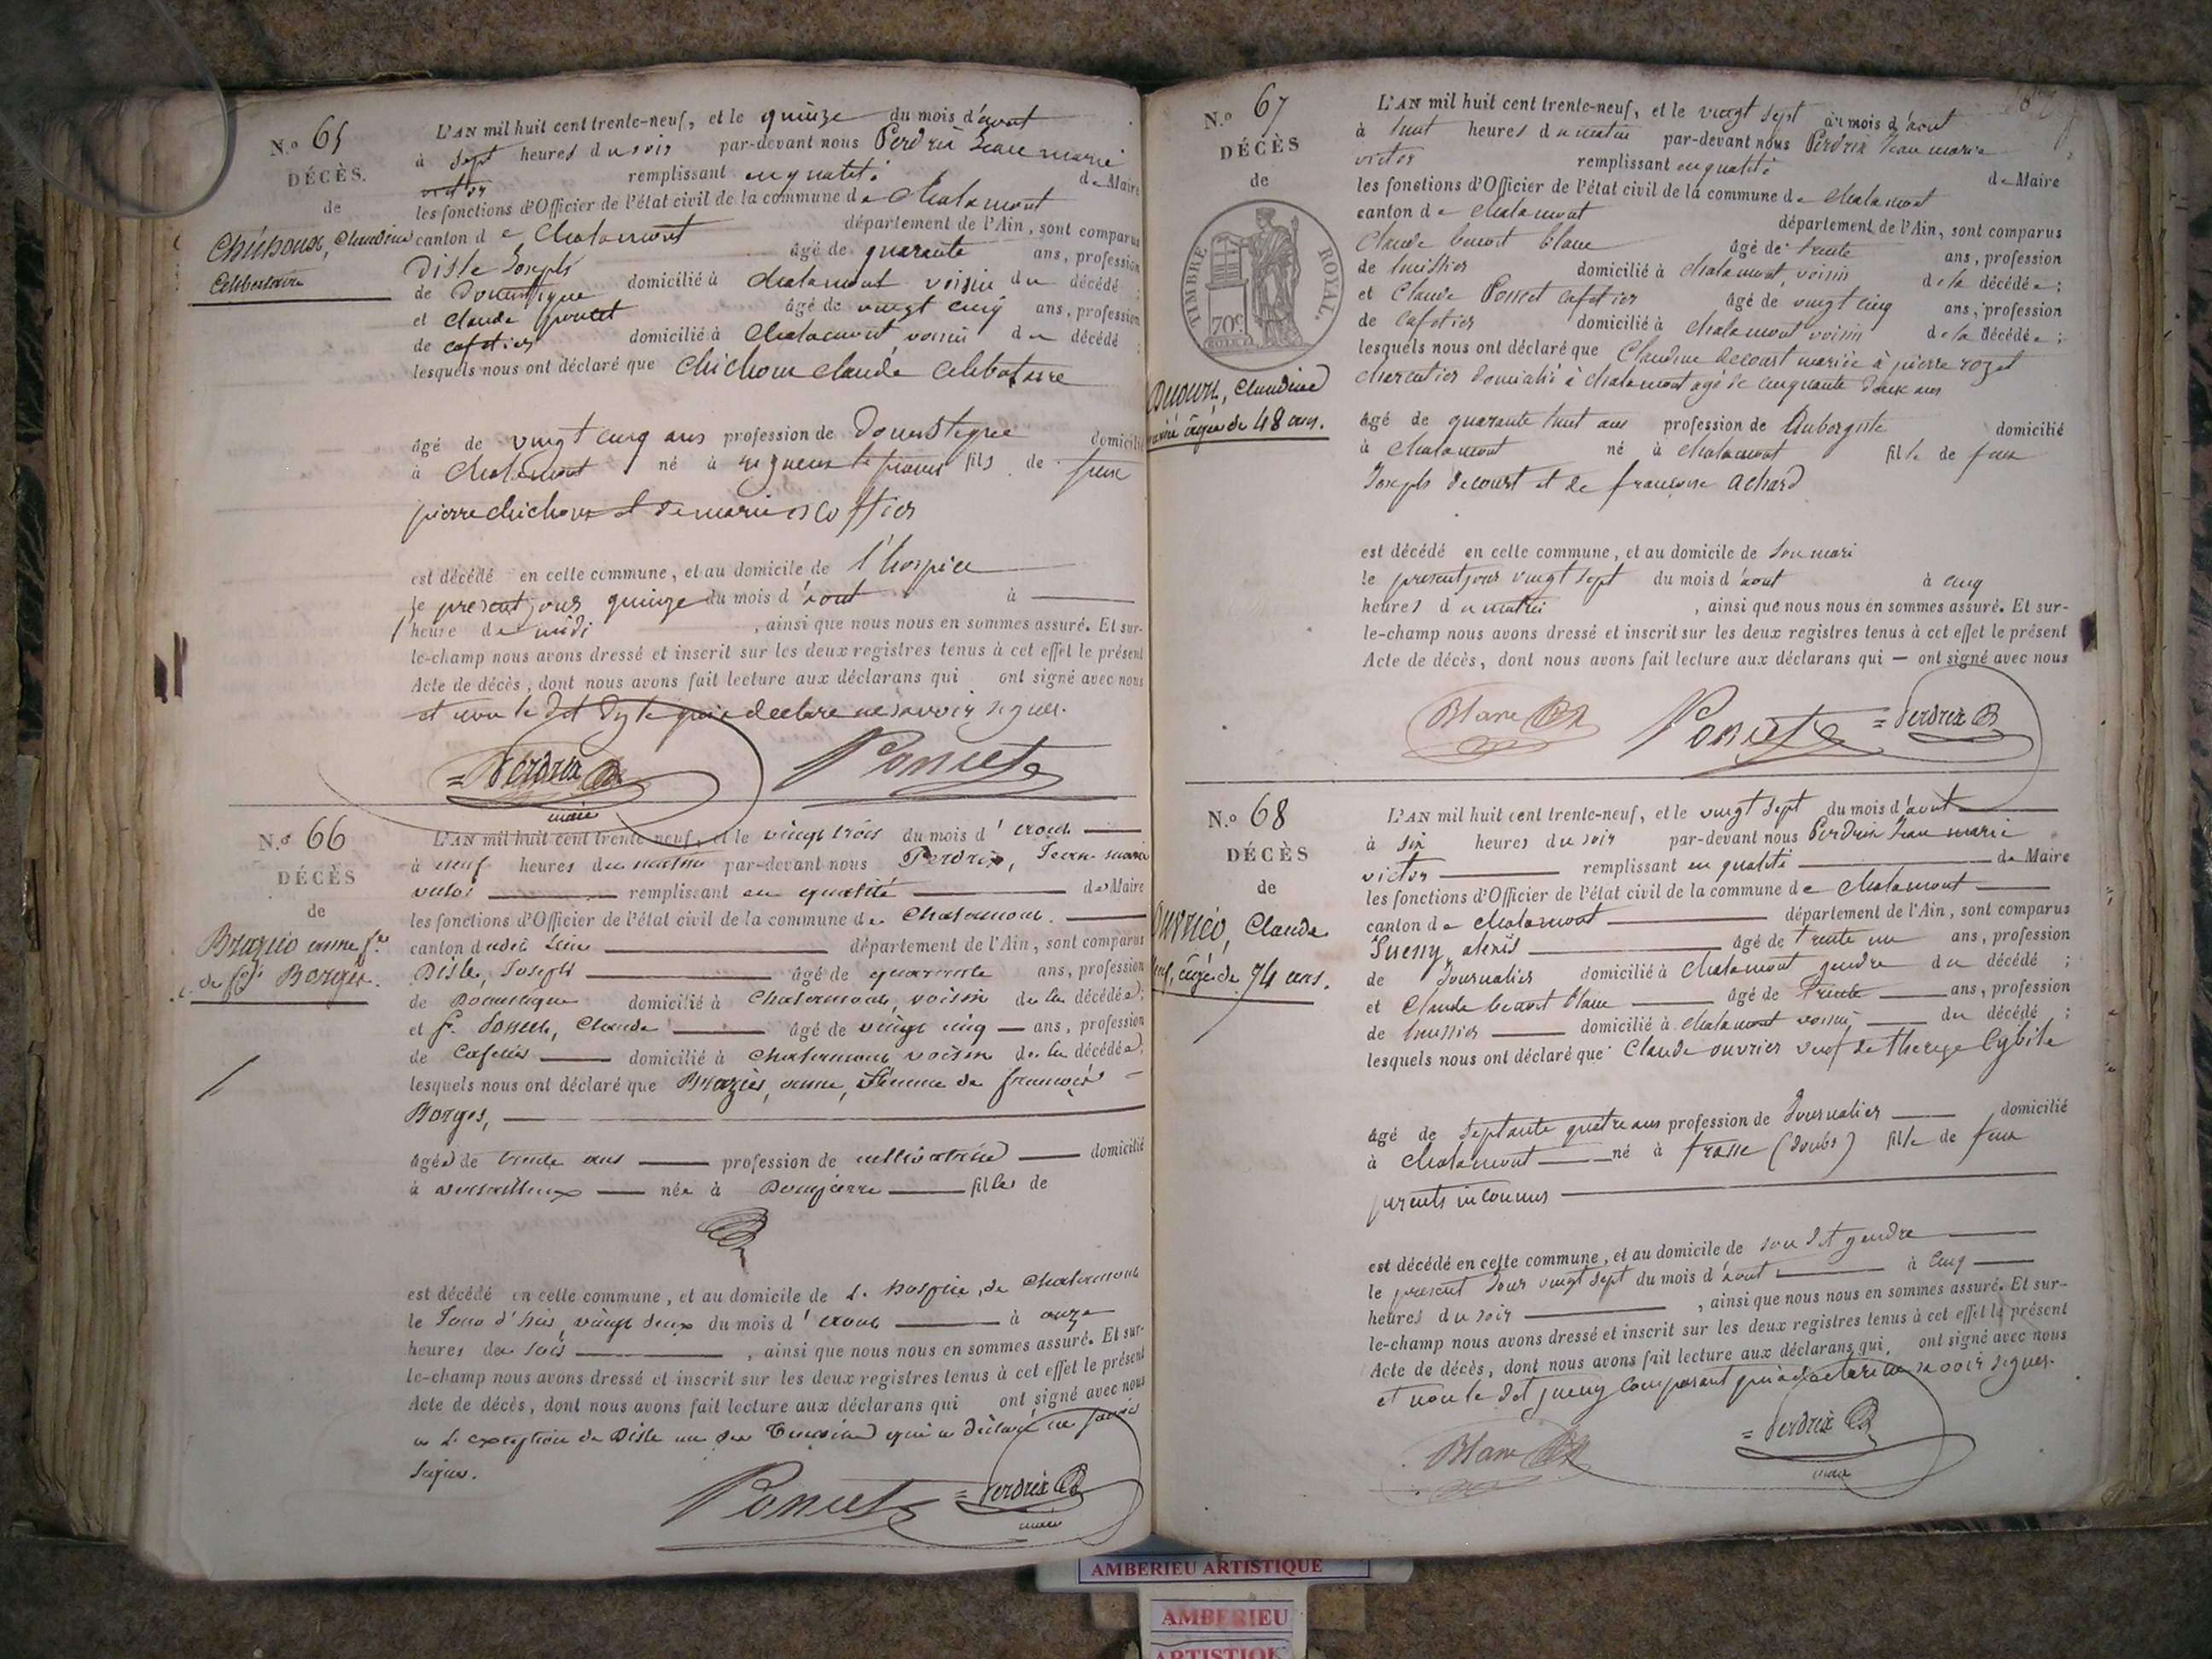 N.o 65
DÉCÈS.
de
Chichoux, Claudine
Célibataire
L'AN mil huit cent trente-neuf, et le quinze du mois d'aout
à sept heures du soir par-devant nous Perdrix Jean marie
victor remplissant en qualité de Maire
les fonctions d'Officier de l'état civil de la commune de Chalamont
canton de Chalamont département de l'Ain, sont comparus
Disle Joseph âgé de quarante ans, profession
de Domestique domicilié à chalamont voisin du décédé ;
et claude poncet âgé de vingt cinq ans, profession
de cafetier domicilié à Chalamont voisin du décédé ;
lesquels nous ont déclaré que chichoux claude celibataire
âgé de vingt cinq ans profession de domestique domicilié
à Chalamont né à fils de feux
pierre chichoux et de marie
est décédé en cette commune, et au domicile de l'hospice
le present jour quinze du mois d'aout à
heure de midi , ainsi que nous nous en sommes assuré. Et sur-
le-champ nous avons dressé et inscrit sur les deux registres tenus à cet effet le présent
Acte de décès, dont nous avons fait lecture aux déclarans qui ont signé avec nous
et non le dit Disle qui a declaré ne savoir signer.
Perdrix Poncet
maire
N.o 66
DÉCÈS
de
Brazier anne fe
de fs Borges.
L'AN mil huit cent trente-neuf, et le vingt trois du mois d'aout
à neuf heures du matin par-devant nous Perdrix, Jean marie
victor remplissant en qualité de Maire
les fonctions d'Officier de l'état civil de la commune de Chalamont.
canton dudit lieu département de l'Ain, sont comparus
Disle, Joseph âgé de quarante ans, profession
de Domestique domicilié à Chalamont, voisin de la décédée ;
et Poncet, Claude âgé de vingt cinq ans, profession
de Cafetier domicilié à Chalamont voisin de la décédée ;
lesquels nous ont déclaré que Brazier, anne, femme de françois
Borges,
âgée de trente ans profession de cultivatrice domicilié
à versailleux née à Dompierre fille de
est décédé en cette commune, et au domicile de L'hospice, de Chalamont
le Jour d'hier, vingt deux du mois d'aout à onze
heures du soir , ainsi que nous nous en sommes assuré. Et sur-
le-champ nous avons dressé et inscrit sur les deux registres tenus à cet effet le présent
Acte de décès, dont nous avons fait lecture aux déclarans qui ont signé avec nous
a L'exception de Disle un des Temoins qui a déclaré ne savoir
signer.
Poncet Perdrix
maire
N.o 67
DÉCÈS
de
TIMBRE ROYAL.
70c
Decourt, Claudine
mariée âgée de 48 ans.
L'AN mil huit cent trente-neuf, et le vingt sept du mois d'aout
à huit heures du matin par-devant nous Perdrix Jean marie
victor remplissant en qualité de Maire
les fonctions d'Officier de l'état civil de la commune de chalamont
canton de chalamont département de l'Ain, sont comparus
Claude benoit blanc âgé de trente ans, profession
de huissier domicilié à chalamont, voisin de la décédée ;
et Claude Poncet cafetier âgé de vingt cinq ans, profession
de Cafetier domicilié à chalamont voisin de la décédée ;
lesquels nous ont déclaré que Claudine decourt mariée à pierre rozet
charcutier domicilié à chalamont agé de cinquante deux ans
âgé de quarante huit ans profession de Aubergiste domicilié
à Chalamont né à chalamont fille de feux
Joseph decourt et de francoise achard
est décédé en cette commune, et au domicile de son mari
le present jour vingt sept du mois d'aout à cinq
heures du matin , ainsi que nous nous en sommes assuré. Et sur-
le-champ nous avons dressé et inscrit sur les deux registres tenus à cet effet le présent
Acte de décès, dont nous avons fait lecture aux déclarans qui — ont signé avec nous
Blanc Poncet Perdrix
N.o 68
DÉCÈS
de
Ouvrier, Claude
veuf, âgé de 74 ans.
L'AN mil huit cent trente-neuf, et le vingt sept du mois d'aout
à six heures du soir par-devant nous Perdrix Jean marie
victor remplissant en qualité de Maire
les fonctions d'Officier de l'état civil de la commune de Chalamont
canton de chalamont département de l'Ain, sont comparus
alexis âgé de trente un ans, profession
de Journalier domicilié à Chalamont gendre du décédé ;
et Claude benoit blanc âgé de trente ans, profession
de huissier domicilié à chalamont voisin du décédé ;
lesquels nous ont déclaré que Claude ouvrier veuf de
âgé de septante quatre ans profession de Journalier domicilié
à chalamont né à (doubs) fille de feux
parents inconnus
est décédé en cette commune, et au domicile de son dit gendre
le present Jour vingt sept du mois d'aout à cinq
heures du soir , ainsi que nous nous en sommes assuré. Et sur-
le-champ nous avons dressé et inscrit sur les deux registres tenus à cet effet le présent
Acte de décès, dont nous avons fait lecture aux déclarans qui, ont signé avec nous
et non le dit comparant qui a declaré ne savoir signer.
Blanc Perdrix
maire
AMBERIEU ARTISTIQUE
AMBERIEU
ARTISTIQUE